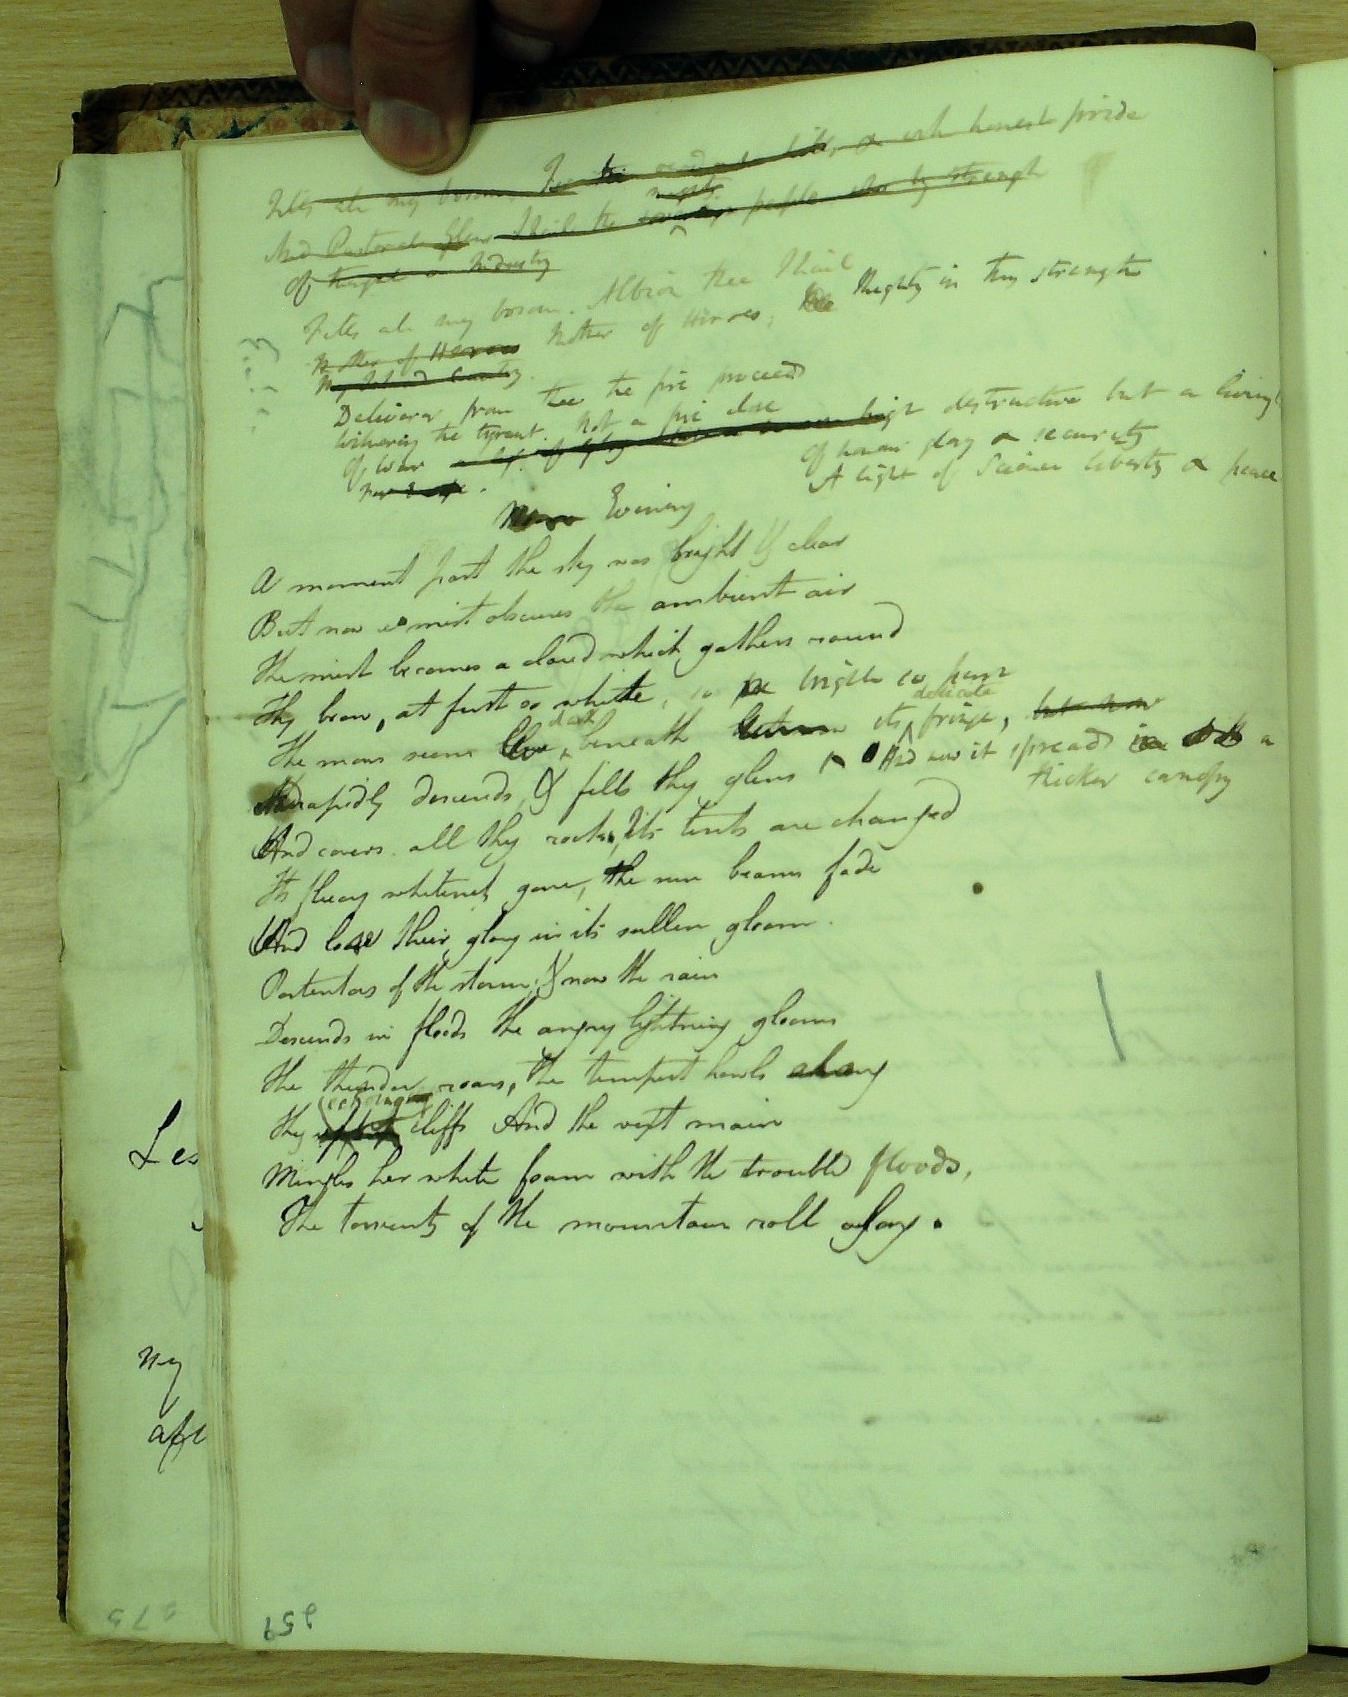 Fills all my bosom. For the & with honest pride
And Pastoral glens I hail the mighty people who by strength
Of Industry
Fills all my bosom. Albion thee I hail
Mother of Heroes Mother of Heroes; Mighty in thy strength
My Island Country.
Deliverer from thee the fire proceeds
Withering the tyrant. Not a fire alone
Of war destructive but a living light
Of honour glory & security
A light of Science liberty & peace
Evening
A moment past the sky was bright & clear
But now a mist obscures the ambient air
The mist becomes a cloud which gathers round
Thy brow, at first so white, so bright so pure
The moss seems dark beneath its delicate fringe, but now
And now it spreads a
thicker canopy
And rapidly descends, & fills thy glens
And covers all thy rocks, Its tints are changed
Its fleecy whiteness gone, the sun beams fade
And lose their glory in its sullen gloom.
Portentous of the storm, & now the rain
Descends in floods the angry lightning gleams
The thunder roars, the tempest howls along
Thy echoing cliffs And the vext main
Mingles her white foam with the troubled floods,
The torrents of the mountain roll along.
Les
my
159